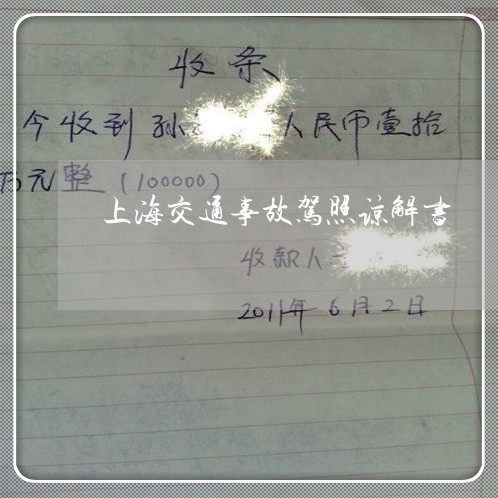 收条
今收到孙 人民币壹拾
万元整（100000）
上海交通事故駕照諒解書
收款人
2011年6月2日